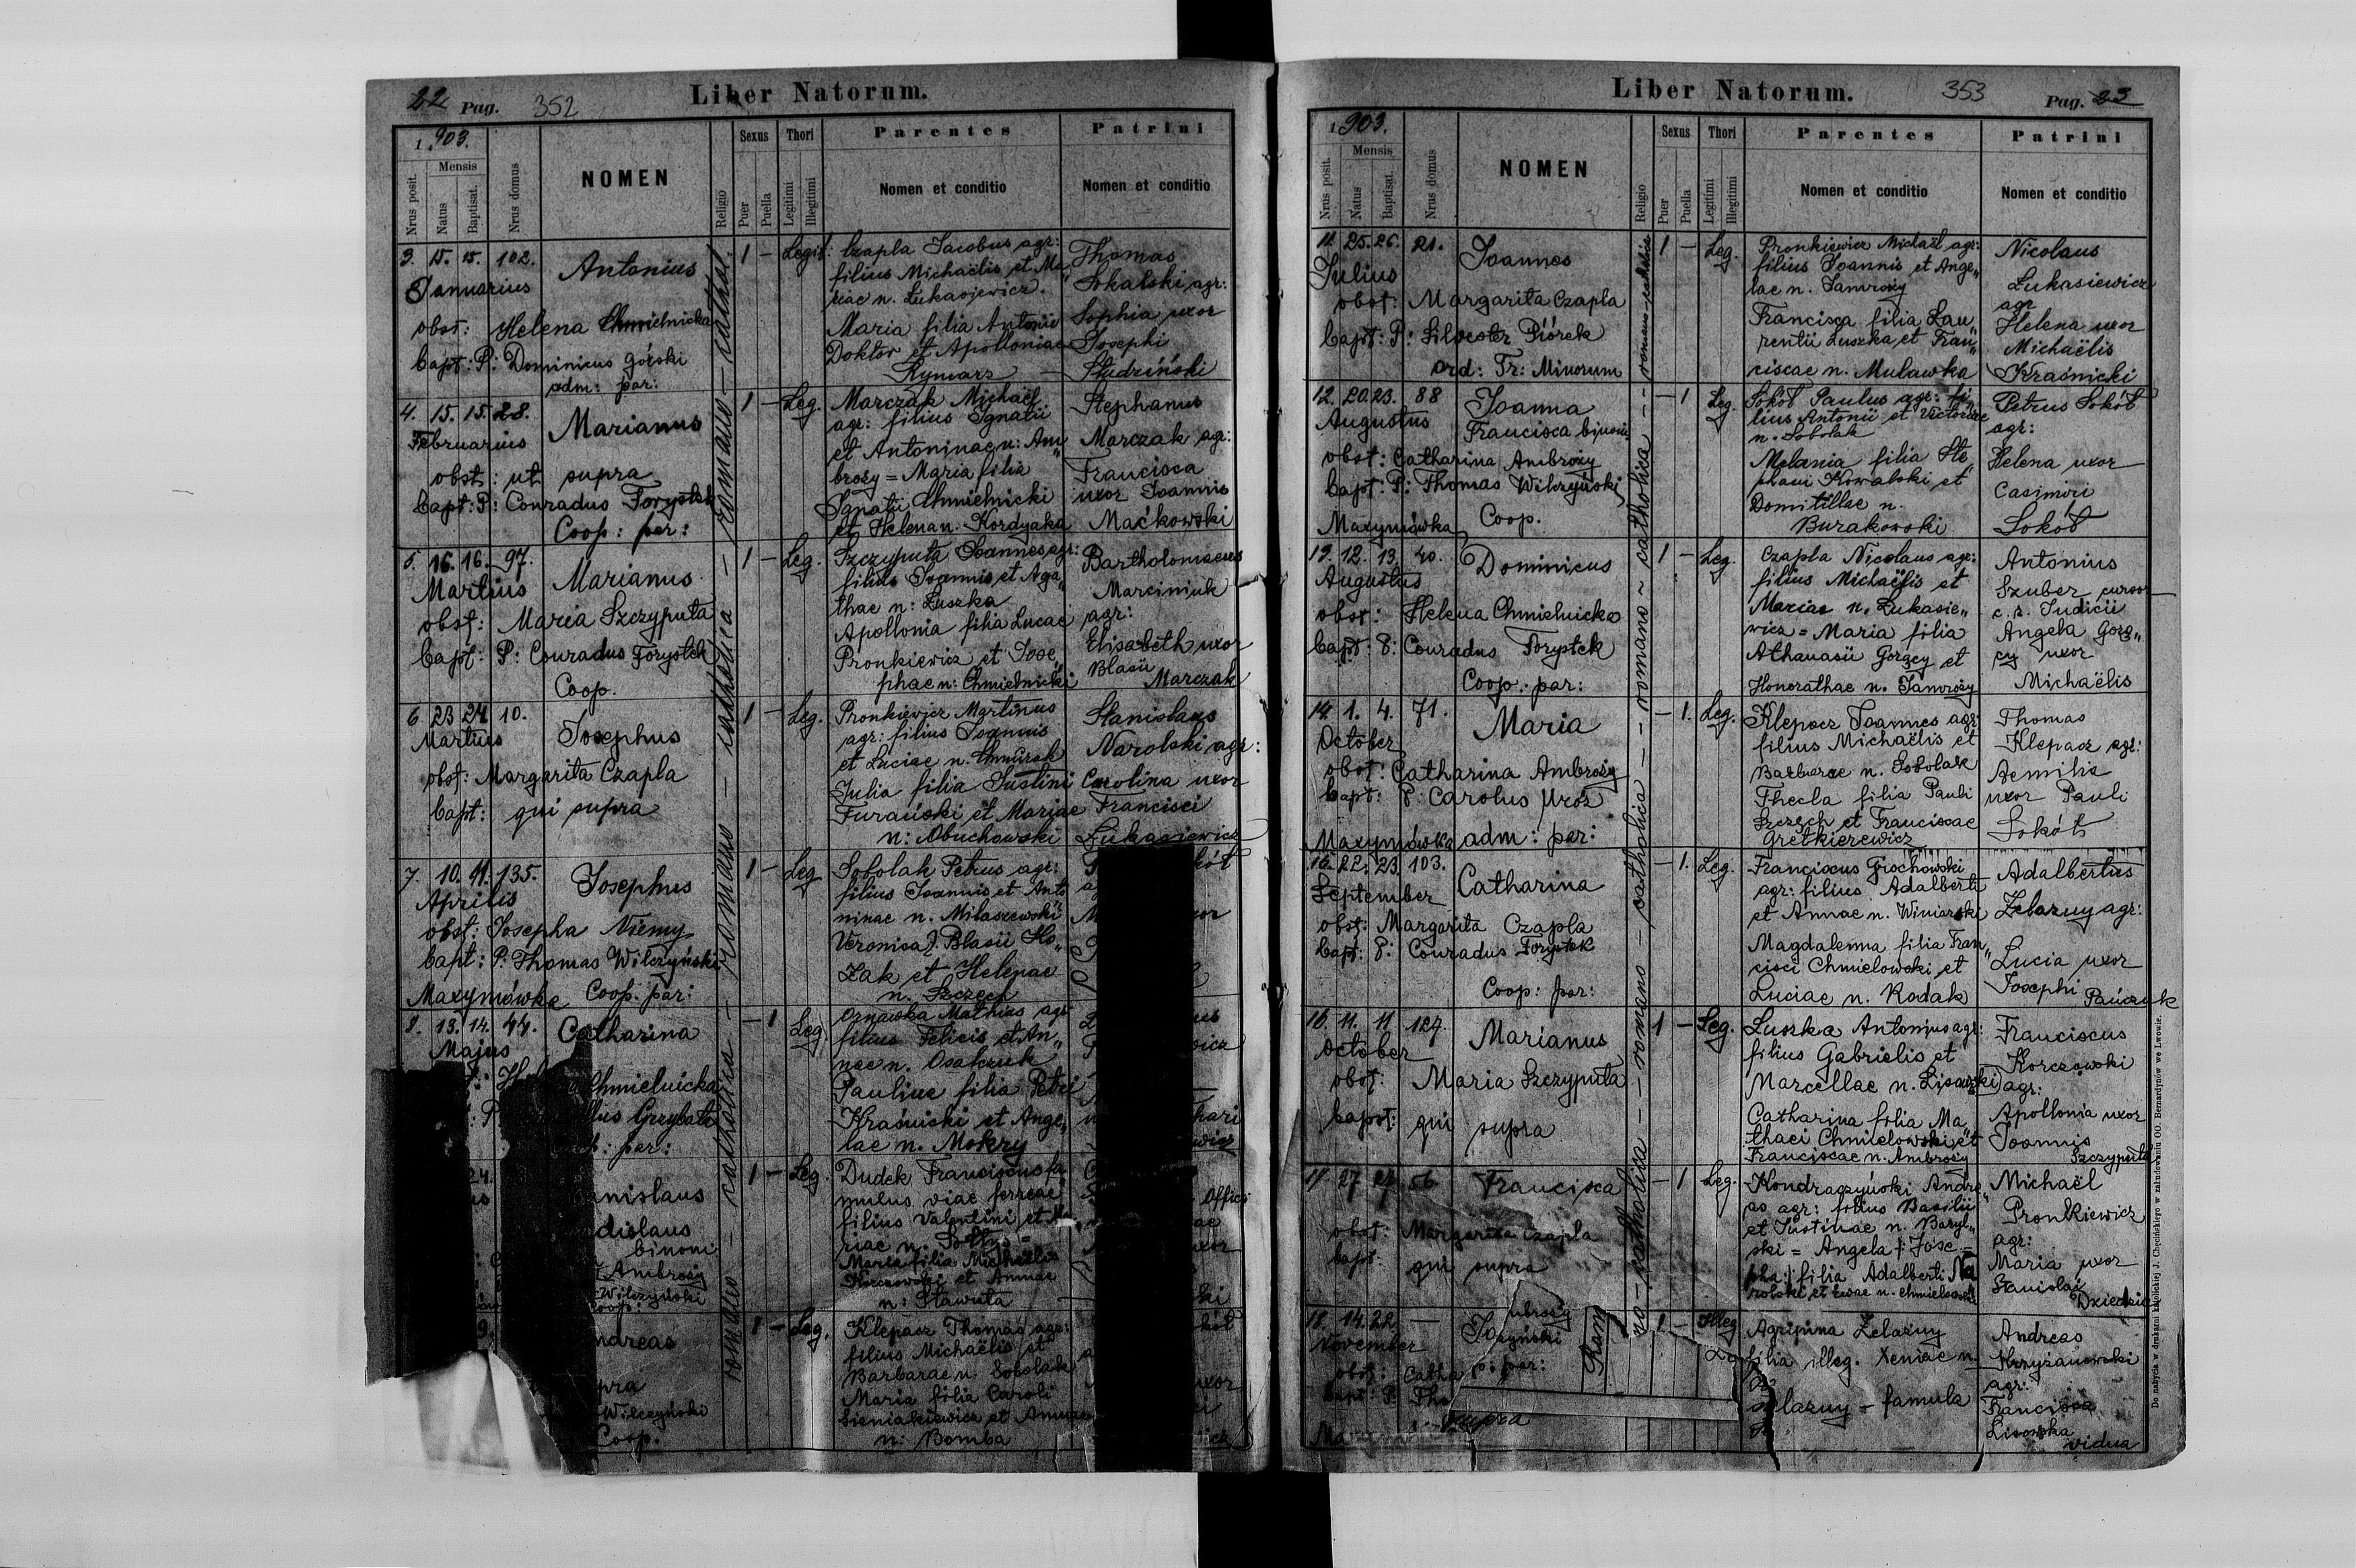 22 Pag. 352
Liber Natorum.
1.903.
Nrus posit.
Mensis
Natus
Baptisat.
Nrus domus
NOMEN
Religio
Sexus
Puer
Puella
Thori
Legitimi
Illegitimi
Parentes
Nomen et conditio
Patrini
Nomen et conditio
romano – catholica – romano – catholica – romano – cathol.
3. 15. 15. 102.
Januarius
Antonius
obst: Helena Chmielnicka
bapt: P: Dominicus Górski
adm: par:
1 – Legit:
Czapla Jacobus agr:
filius Michaëlis et Ma„
riae n. Łukasiewicz.
Maria filia Antonii
Doktor et Apolloniae
Rymarz
Thomas
Sokalski agr:
Sophia uxor
Josephi
Studziński
4. 15. 15. 28.
Februarius
Marianus
obst: ut supra
bapt: P: Conradus Forystek
Coop: par:
1 – Leg.
Marczak Michaël
agr: filius Ignatii
et Antoninae n: Am„
broży = Maria filia
Ignatii Chmielnicki
et Helena n. Kordyaka
Stephanus
Marczak agr:
Francisca
uxor Joannis
Maćkowski
5. 16. 16. 97.
Martius
Marianus
obst: Maria Szczyputa
bapt: P: Conradus Forystek
Coop.
1 – Leg.
Szczyputa Joannes agr:
filius Joannis et Aga„
thae n: Łuszka
Apollonia filia Lucae
Pronkiewicz et Jose„
phae n: Chmielnicki
Bartholomaeus
Marciniuk
agr:
Elisabeth uxor
Blasii
Marczak
6 23 24. 10.
Martius
Josephus
obst: Margarita Czapla
bapt: qui supra
1 – Leg.
Pronkiewicz Martinus
agr: filius Joannis
et Luciae n.
Julia filia Justini
Furański et Mariae
n: Obuchowski
Stanislaus
Narolski agr:
Carolina uxor
Francisci
Łukasiewicz
7. 10. 11. 135.
Aprilis
Josephus
obst: Josepha Niemy
bapt: P: Thomas Wilczyński
Maxymówka Coop. par:
1 – Leg
Sobolak Petrus agr:
filius Joannis et Anto
ninae n. Milaszewski
Veronica f. Blasii Ko„
zak et Helenae
n. Szczech
8. 13. 14. 44.
Majus
Catharina
Chmielnicka
Grzybała
par:
– 1 Leg
Oznawka Mathias agr
filius Felicis et An„
nae n. Osatczuk
Paulina filia Petri
Kraśnicki et Ange„
lae n. Mokry
24.
binomi
Ambroży
Wilczyński
Coop.
1 – Leg.
Dudek Franciscus fa„
mulus viae ferreae
filius Valentini et Ma„
riae n: Sołtys =
Maria filia Michaëlis
Korczowski et Annae
n: Sławuta
uxor
9.
1 – Leg.
Klepacz Thomas agr:
filius Michaëlis et
Barbarae n. Sobolak
Maria filia Caroli
Sieniakiewicz et Annae
n: Bomba
Wilczyński
Coop.
uxor
Liber Natorum.
353 Pag. 23
1.903.
Nrus posit.
Mensis
Natus
Baptisat.
Nrus domus
NOMEN
Religio
Sexus
Puer
Puella
Thori
Legitimi
Illegitimi
Parentes
Nomen et conditio
Patrini
Nomen et conditio
no – catholica – romano – catholica – romano – catholica – romano – catholica
11. 25. 26. 21.
Julius
Joannes
obst: Margarita Czapla
bapt: P: Silvester Piórek
ord: Fr: Minorum
1 – Leg.
Pronkiewicz Michaël agr:
filius Joannis et Ange„
lae n. Jamroży
Francisca filia Lau„
rentii Łuszka et Fran„
ciscae n. Mulawka
Nicolaus
Łukasiewicz
agr
Helena uxor
Michaëlis
Kraśnicki
12. 20. 23. 88
Augustus
Joanna
Francisca binomi
obst: Catharina Ambroży
bapt: P: Thomas Wilczyński
Maxymówka Coop.
– 1 Leg.
Sokół Paulus agr: fi„
lius Antonii et Victoriae
n. Sobolak
Melania filia Ste„
phani Kowalski et
Domitillae n.
Burakowski
Petrus Sokół
agr:
Helena uxor
Casimiri
Sokół
13. 12. 13. 40.
Augustus
Dominicus
obst: Helena Chmielnicka
bapt: P: Conradus Forystek
Coop: par:
1 – Leg.
Czapla Nicolaus agr:
filius Michaëlis et
Mariae n. Łukasie„
wicz = Maria filia
Athanasii Gorzcy et
Honorathae n. Jamroży
Antonius
Szuber cursor
c. r. Judicii
Angela Gorz„
cy uxor
Michaëlis
14. 1. 4. 71.
October
Maria
obst: Catharina Ambroży
bapt: P: Carolus Mroz
Maxymówka adm: par:
– 1. Leg.
Klepacz Joannes agr:
filius Michaëlis et
Barbarae n. Sobolak
Thecla filia Pauli
Szczech et Franciscae
Gretkierewicz
Thomas
Klepacz agr:
Aemilia
uxor Pauli
Sokół
15. 22. 23. 103.
September
Catharina
obst: Margarita Czapla
bapt: P: Conradus Forystek
Coop: par:
– 1. Leg.
Franciscus Grochowski
agr: filius Adalberti
et Annae n. Winiarski
Magdalenna filia Fran„
cisci Chmielowski et
Luciae n. Rodak
Adalbertus
Żelazny agr:
Lucia uxor
Josephi
Pańczuk
16. 11. 11 127.
October
Marianus
obst: Maria Szczyputa
bapt: qui supra
1 – Leg.
Łuszka Antonius agr:
filius Gabrielis et
Marcellae n. Lisowski
Catharina filia Ma„
thaei Chmielowski et
Franciscae n. Ambroży
Franciscus
Korczowski
agr:
Apollonia uxor
Joannis
Szczyputa
17 27 27 56
Francisca
obst: Margarita Czapla
bapt: qui supra
– 1 Leg.
Kondraczyński Andre„
as agr: filius Basilii
et Justinae n. Baryl„
ski = Angela /: Jose„
pha:/ filia Adalberti Na
rolski et Evae n. Chmielowski
Michaël
Pronkiewicz
agr:
Maria uxor
Stanislai
Dziedzic
18. 14. 22. —
November
obst: Catha
bapt: P Tho
par:
supra
Rom
1 – Illeg
Agripina Żelazny
filia illeg. Xeniae n.
famula
Andreas
Krzyżanowski
agr:
Francisca
Lisowska
vidua
Do nabycia w drukarni katolickiej J. Chęcińskiego w zabudowaniu OO. Bernardynów we Lwowie.